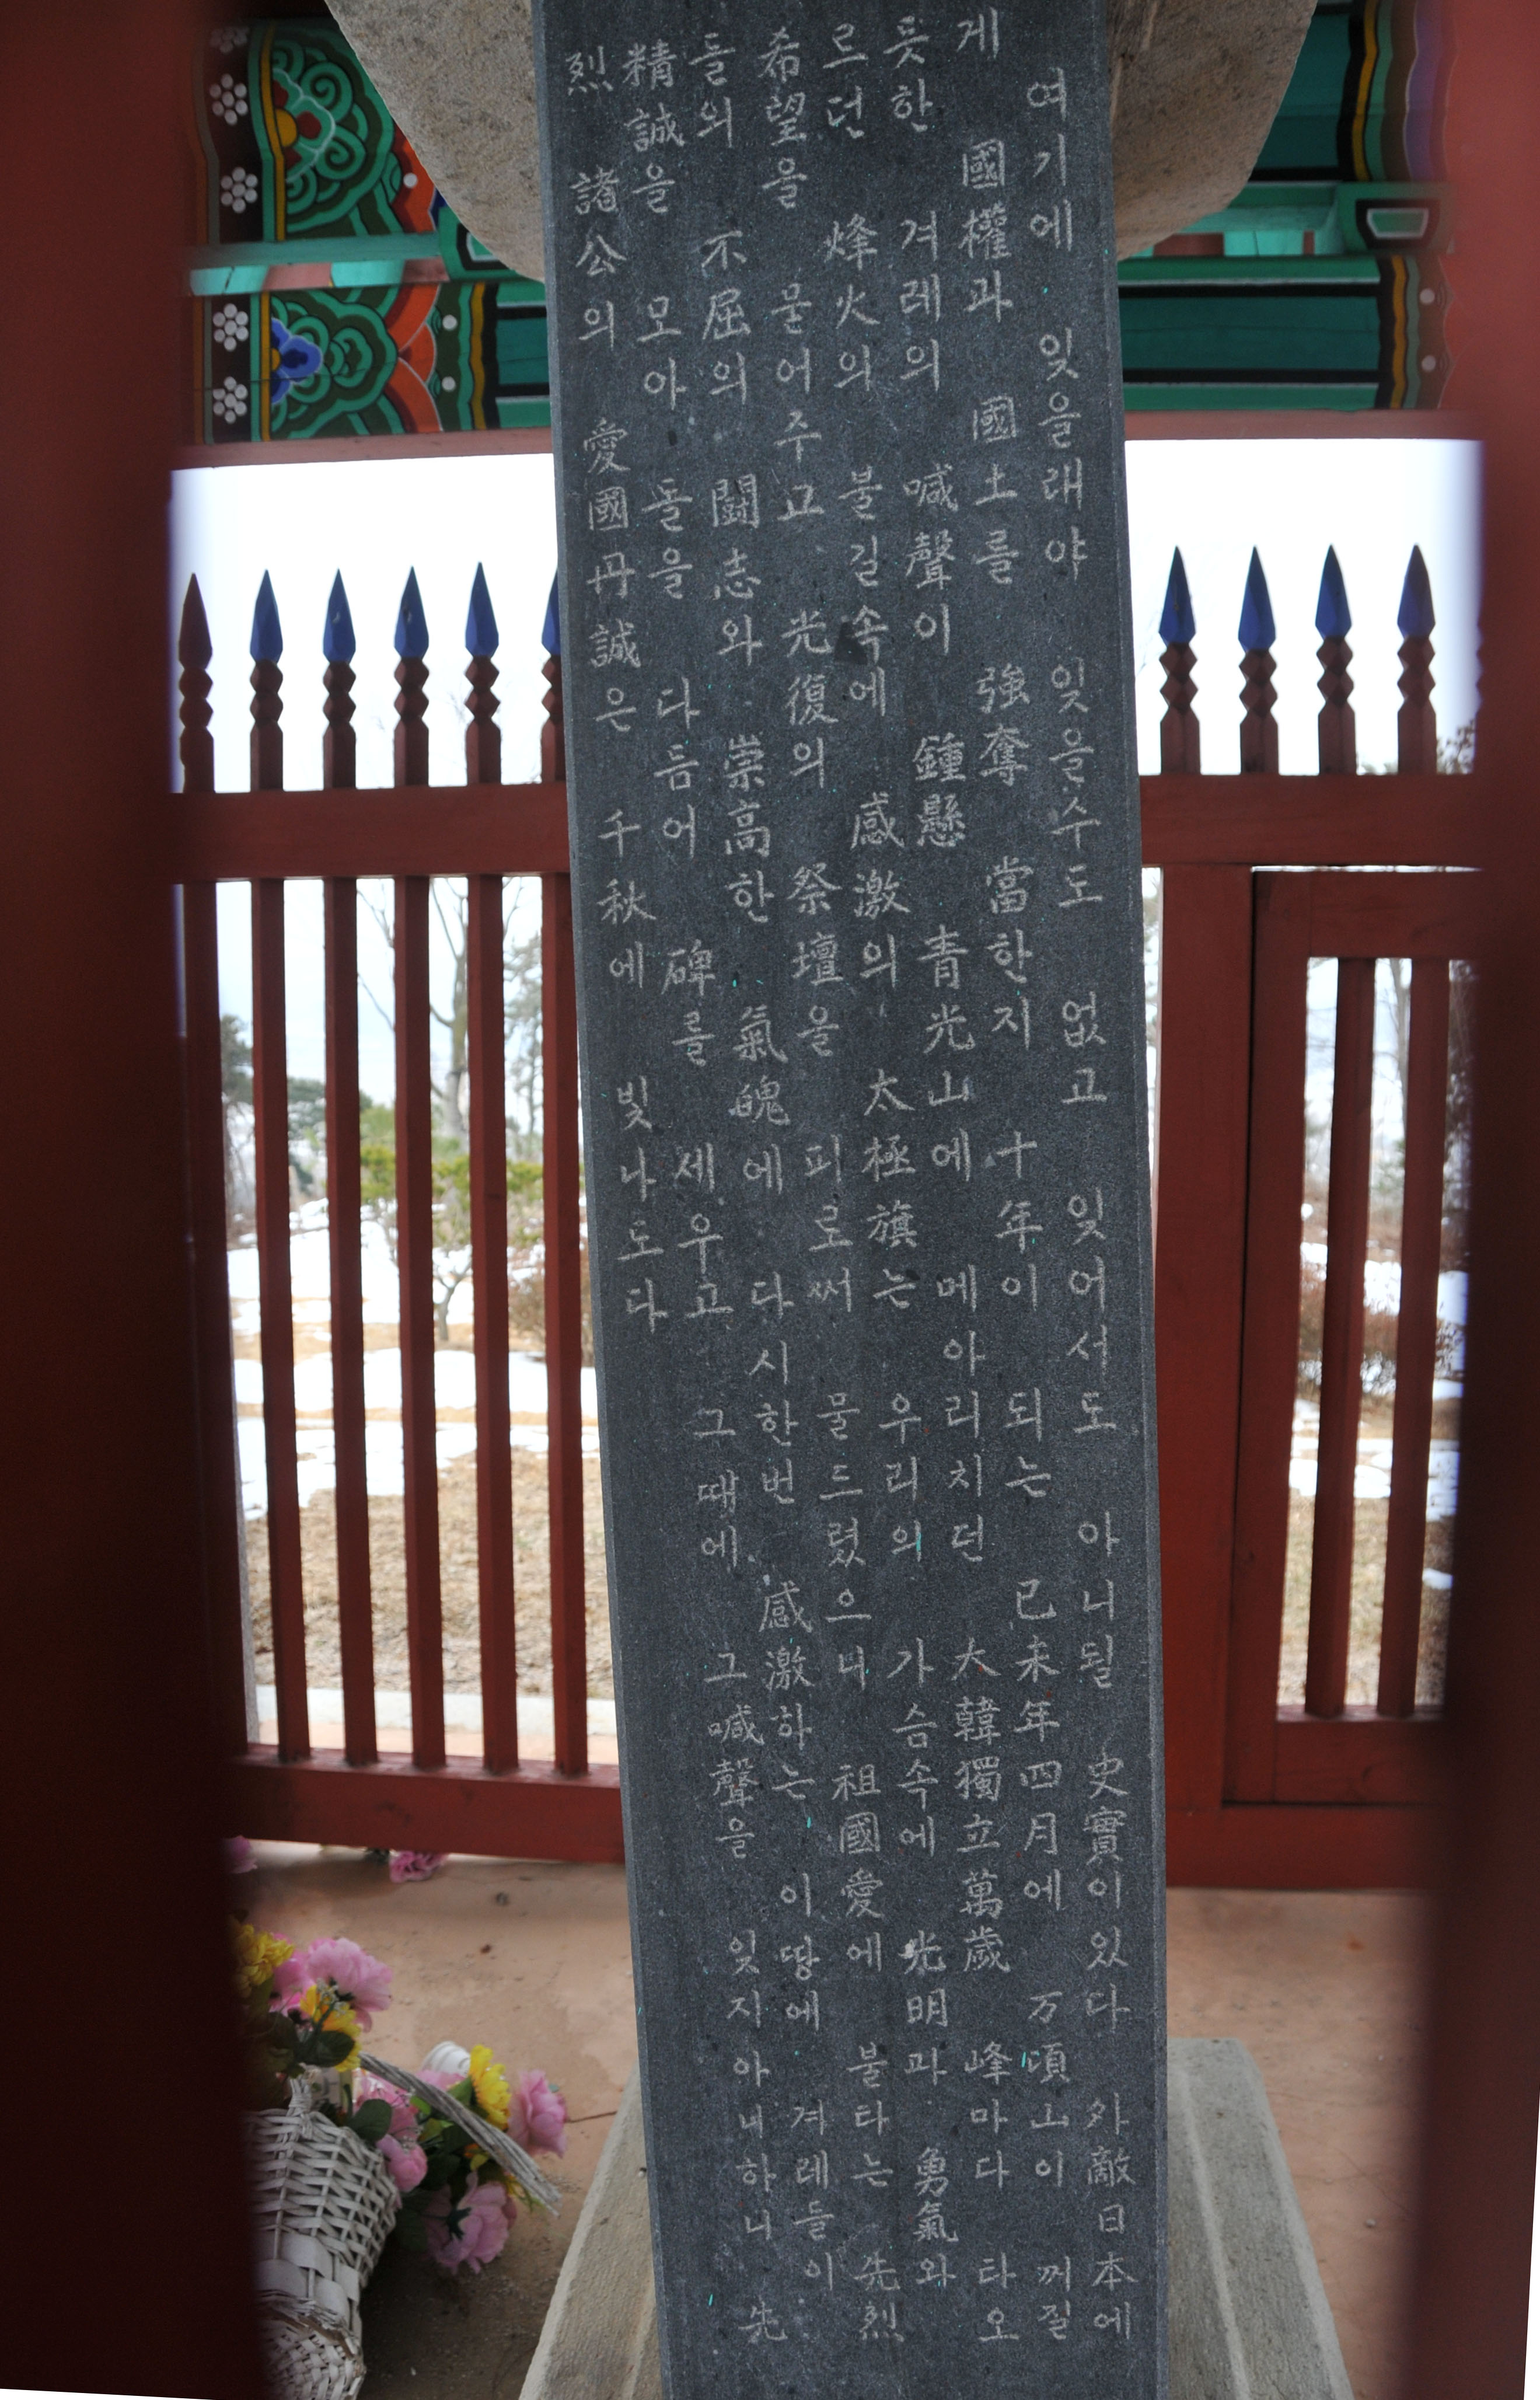 여기에 잊을래야 잊을수도 없고 잊어서도 아니될 史實이 있다 外敵日本에
게 國權과 國土를 強奪 當한지 十年이 되는 己未年四月에 万頃山이 꺼질
듯한 겨레의 喊聲이 鍾懸 靑光山에 메아리치던 大韓獨立萬歲 峰마다 타오
르던 烽火의 불길속에 感激의 太極旗는 우리의 가슴속에 光明과 勇氣와
希望을 묻어주고 光復의 祭壇을 피로써 물드렸으니 祖國愛에 불타는 先烈
들의 不屈의 鬪志와 崇高한 氣魄에 다시한번 感激하는 이땅에 겨레들이
精誠을 모아 돌을 다듬어 碑를 세우고 그때에 그喊聲을 잊지아니하니 先
烈 諸公의 愛國丹誠은 千秋에 빛나도다